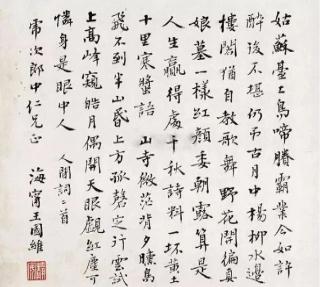 姑蘇臺上烏啼賸霸業今如許
醉後不堪仍弔古月中楊柳水邊
樓閣猶自教歌舞野花開徧真
娘墓一樣紅顏委朝露算是
人生贏得處千秋詩料一抔黃土
十里寒螿語 山寺微茫背夕曛鳥
飛不到半山昏上方孤磬定行雲試
上高峰窺皓月偶開天眼覷紅塵可
憐身是眼中人 人間詞二首
次郎中仁兄正
海甯王國維